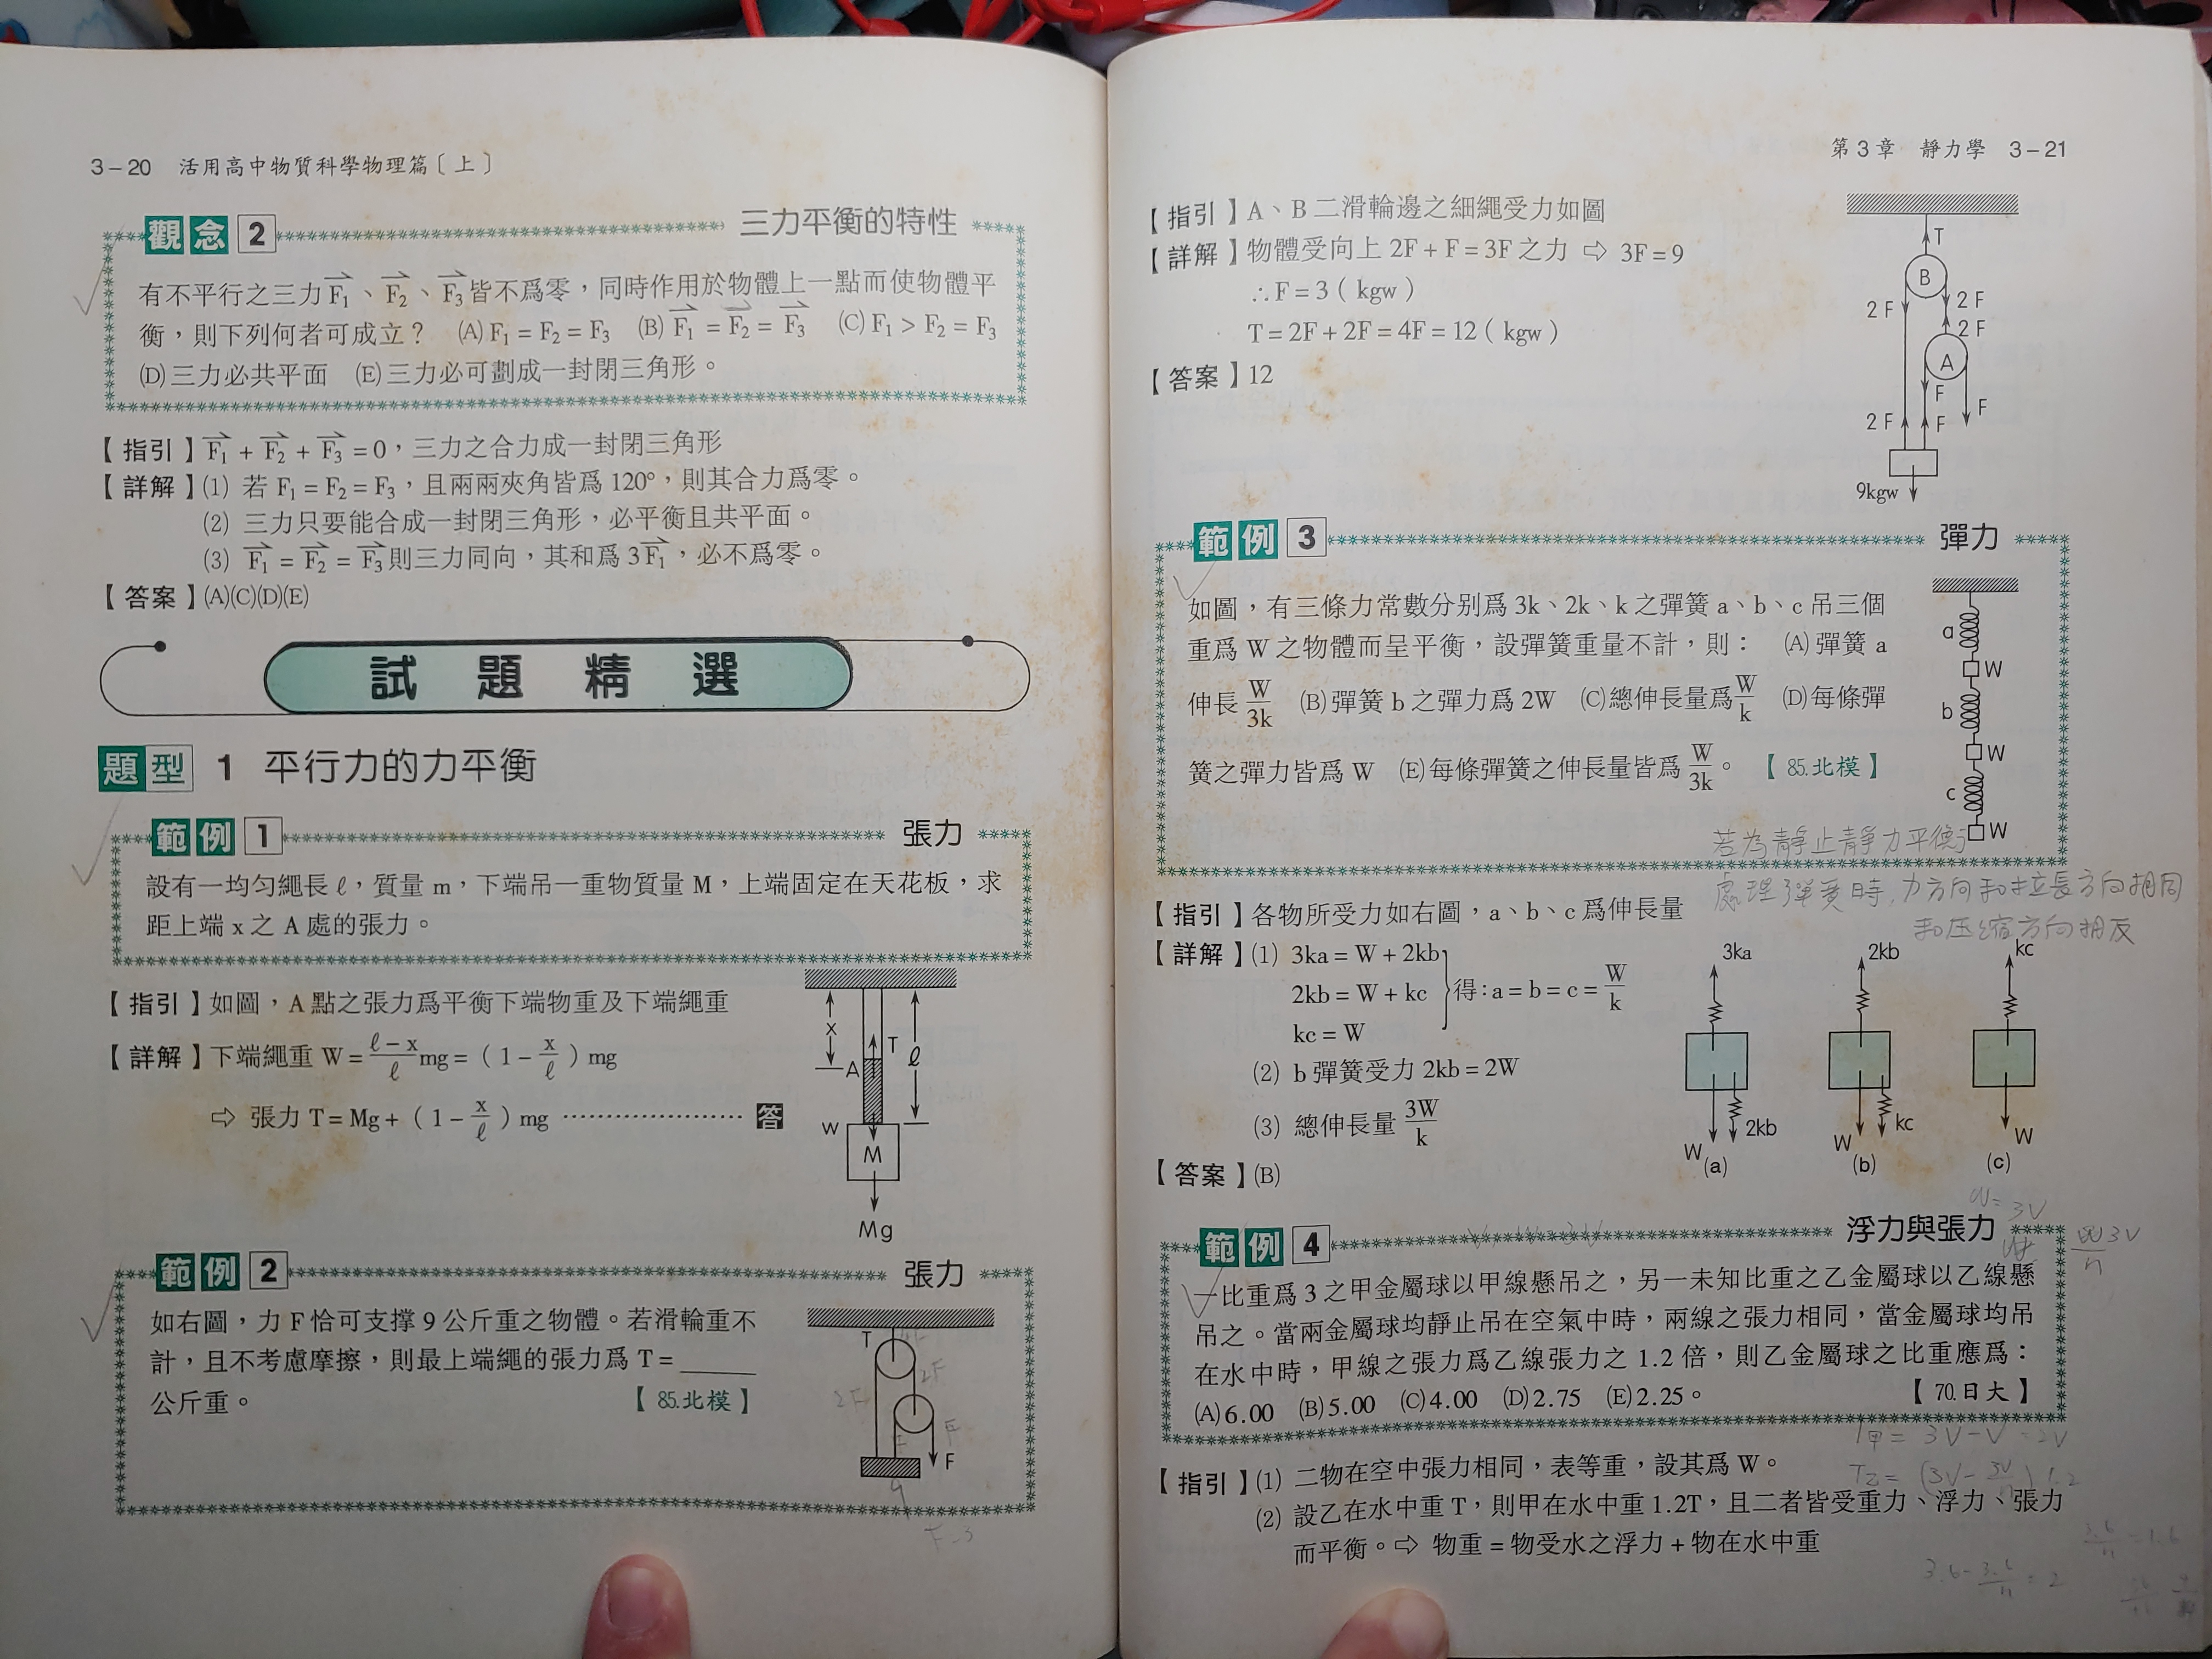 3-20 活用高中物質科學物理篇〔上〕
觀念 2 三力平衡的特性
有不平行之三力 F₁、F₂、F₃ 皆不爲零，同時作用於物體上一點而使物體平
衡，則下列何者可成立？ (A) F₁ = F₂ = F₃ (B) F₁ = F₂ = F₃ (C) F₁ > F₂ = F₃
(D)三力必共平面 (E)三力必可劃成一封閉三角形。
【指引】F₁ + F₂ + F₃ = 0，三力之合力成一封閉三角形
【詳解】(1) 若 F₁ = F₂ = F₃，且兩兩夾角皆爲 120°，則其合力爲零。
(2) 三力只要能合成一封閉三角形，必平衡且共平面。
(3) F₁ = F₂ = F₃ 則三力同向，其和爲 3F₁，必不爲零。
【答案】(A)(C)(D)(E)
試題精選
題型 1 平行力的力平衡
範例 1 張力
設有一均匀繩長 ℓ，質量 m，下端吊一重物質量 M，上端固定在天花板，求
距上端 x 之 A 處的張力。
【指引】如圖，A 點之張力爲平衡下端物重及下端繩重
【詳解】下端繩重 W = (ℓ-x)/ℓ mg = ( 1 - x/ℓ ) mg
⇨ 張力 T = Mg + ( 1 - x/ℓ ) mg ………………… 答
x
T
ℓ
A
W
M
Mg
範例 2 張力
如右圖，力 F 恰可支撐 9 公斤重之物體。若滑輪重不
計，且不考慮摩擦，則最上端繩的張力爲 T = ______
公斤重。 【85.北模】
T
2F
2F
F
F
F
9
F=3
第 3 章 靜力學 3-21
【指引】A、B 二滑輪邊之細繩受力如圖
【詳解】物體受向上 2F + F = 3F 之力 ⇨ 3F = 9
∴ F = 3 ( kgw )
T = 2F + 2F = 4F = 12 ( kgw )
【答案】12
T
B
2F
2F
2F
A
F
F
2F
F
9kgw
範例 3 彈力
如圖，有三條力常數分別爲 3k、2k、k 之彈簧 a、b、c 吊三個
重爲 W 之物體而呈平衡，設彈簧重量不計，則： (A)彈簧 a
伸長 W/3k (B)彈簧 b 之彈力爲 2W (C)總伸長量爲 W/k (D)每條彈
簧之彈力皆爲 W (E)每條彈簧之伸長量皆爲 W/3k。 【85.北模】
a
W
b
W
c
W
若為靜止靜力平衡
處理彈簧時，力方向和拉長方向相同
和压缩方向相反
【指引】各物所受力如右圖，a、b、c 爲伸長量
【詳解】(1) 3ka = W + 2kb
2kb = W + kc 得：a = b = c = W/k
kc = W
(2) b 彈簧受力 2kb = 2W
(3) 總伸長量 3W/k
【答案】(B)
3ka
2kb
kc
W
2kb
W
kc
W
(a)
(b)
(c)
範例 4 浮力與張力
一比重爲 3 之甲金屬球以甲線懸吊之，另一未知比重之乙金屬球以乙線懸
吊之。當兩金屬球均靜止吊在空氣中時，兩線之張力相同，當金屬球均吊
在水中時，甲線之張力爲乙線張力之 1.2 倍，則乙金屬球之比重應爲：
(A)6.00 (B)5.00 (C)4.00 (D)2.75 (E)2.25。 【70.日大】
T甲 = 3V - V = 2V
【指引】(1) 二物在空中張力相同，表等重，設其爲 W。
(2) 設乙在水中重 T，則甲在水中重 1.2T，且二者皆受重力、浮力、張力
而平衡。⇨ 物重 = 物受水之浮力 + 物在水中重